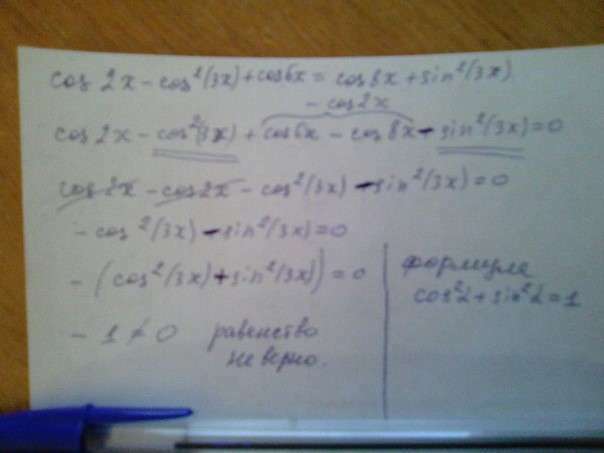 cos 2x - cos²(3x) + cos6x = cos8x + sin²(3x)
- cos2x
cos 2x - cos²(3x) + cos6x - cos8x - sin²(3x) = 0
cos 2x - cos2x - cos²(3x) - sin²(3x) = 0
- cos²(3x) - sin²(3x) = 0
- (cos²(3x) + sin²(3x)) = 0
- 1 ≠ 0 равенство
не верно.
формула
cos²α + sin²α = 1